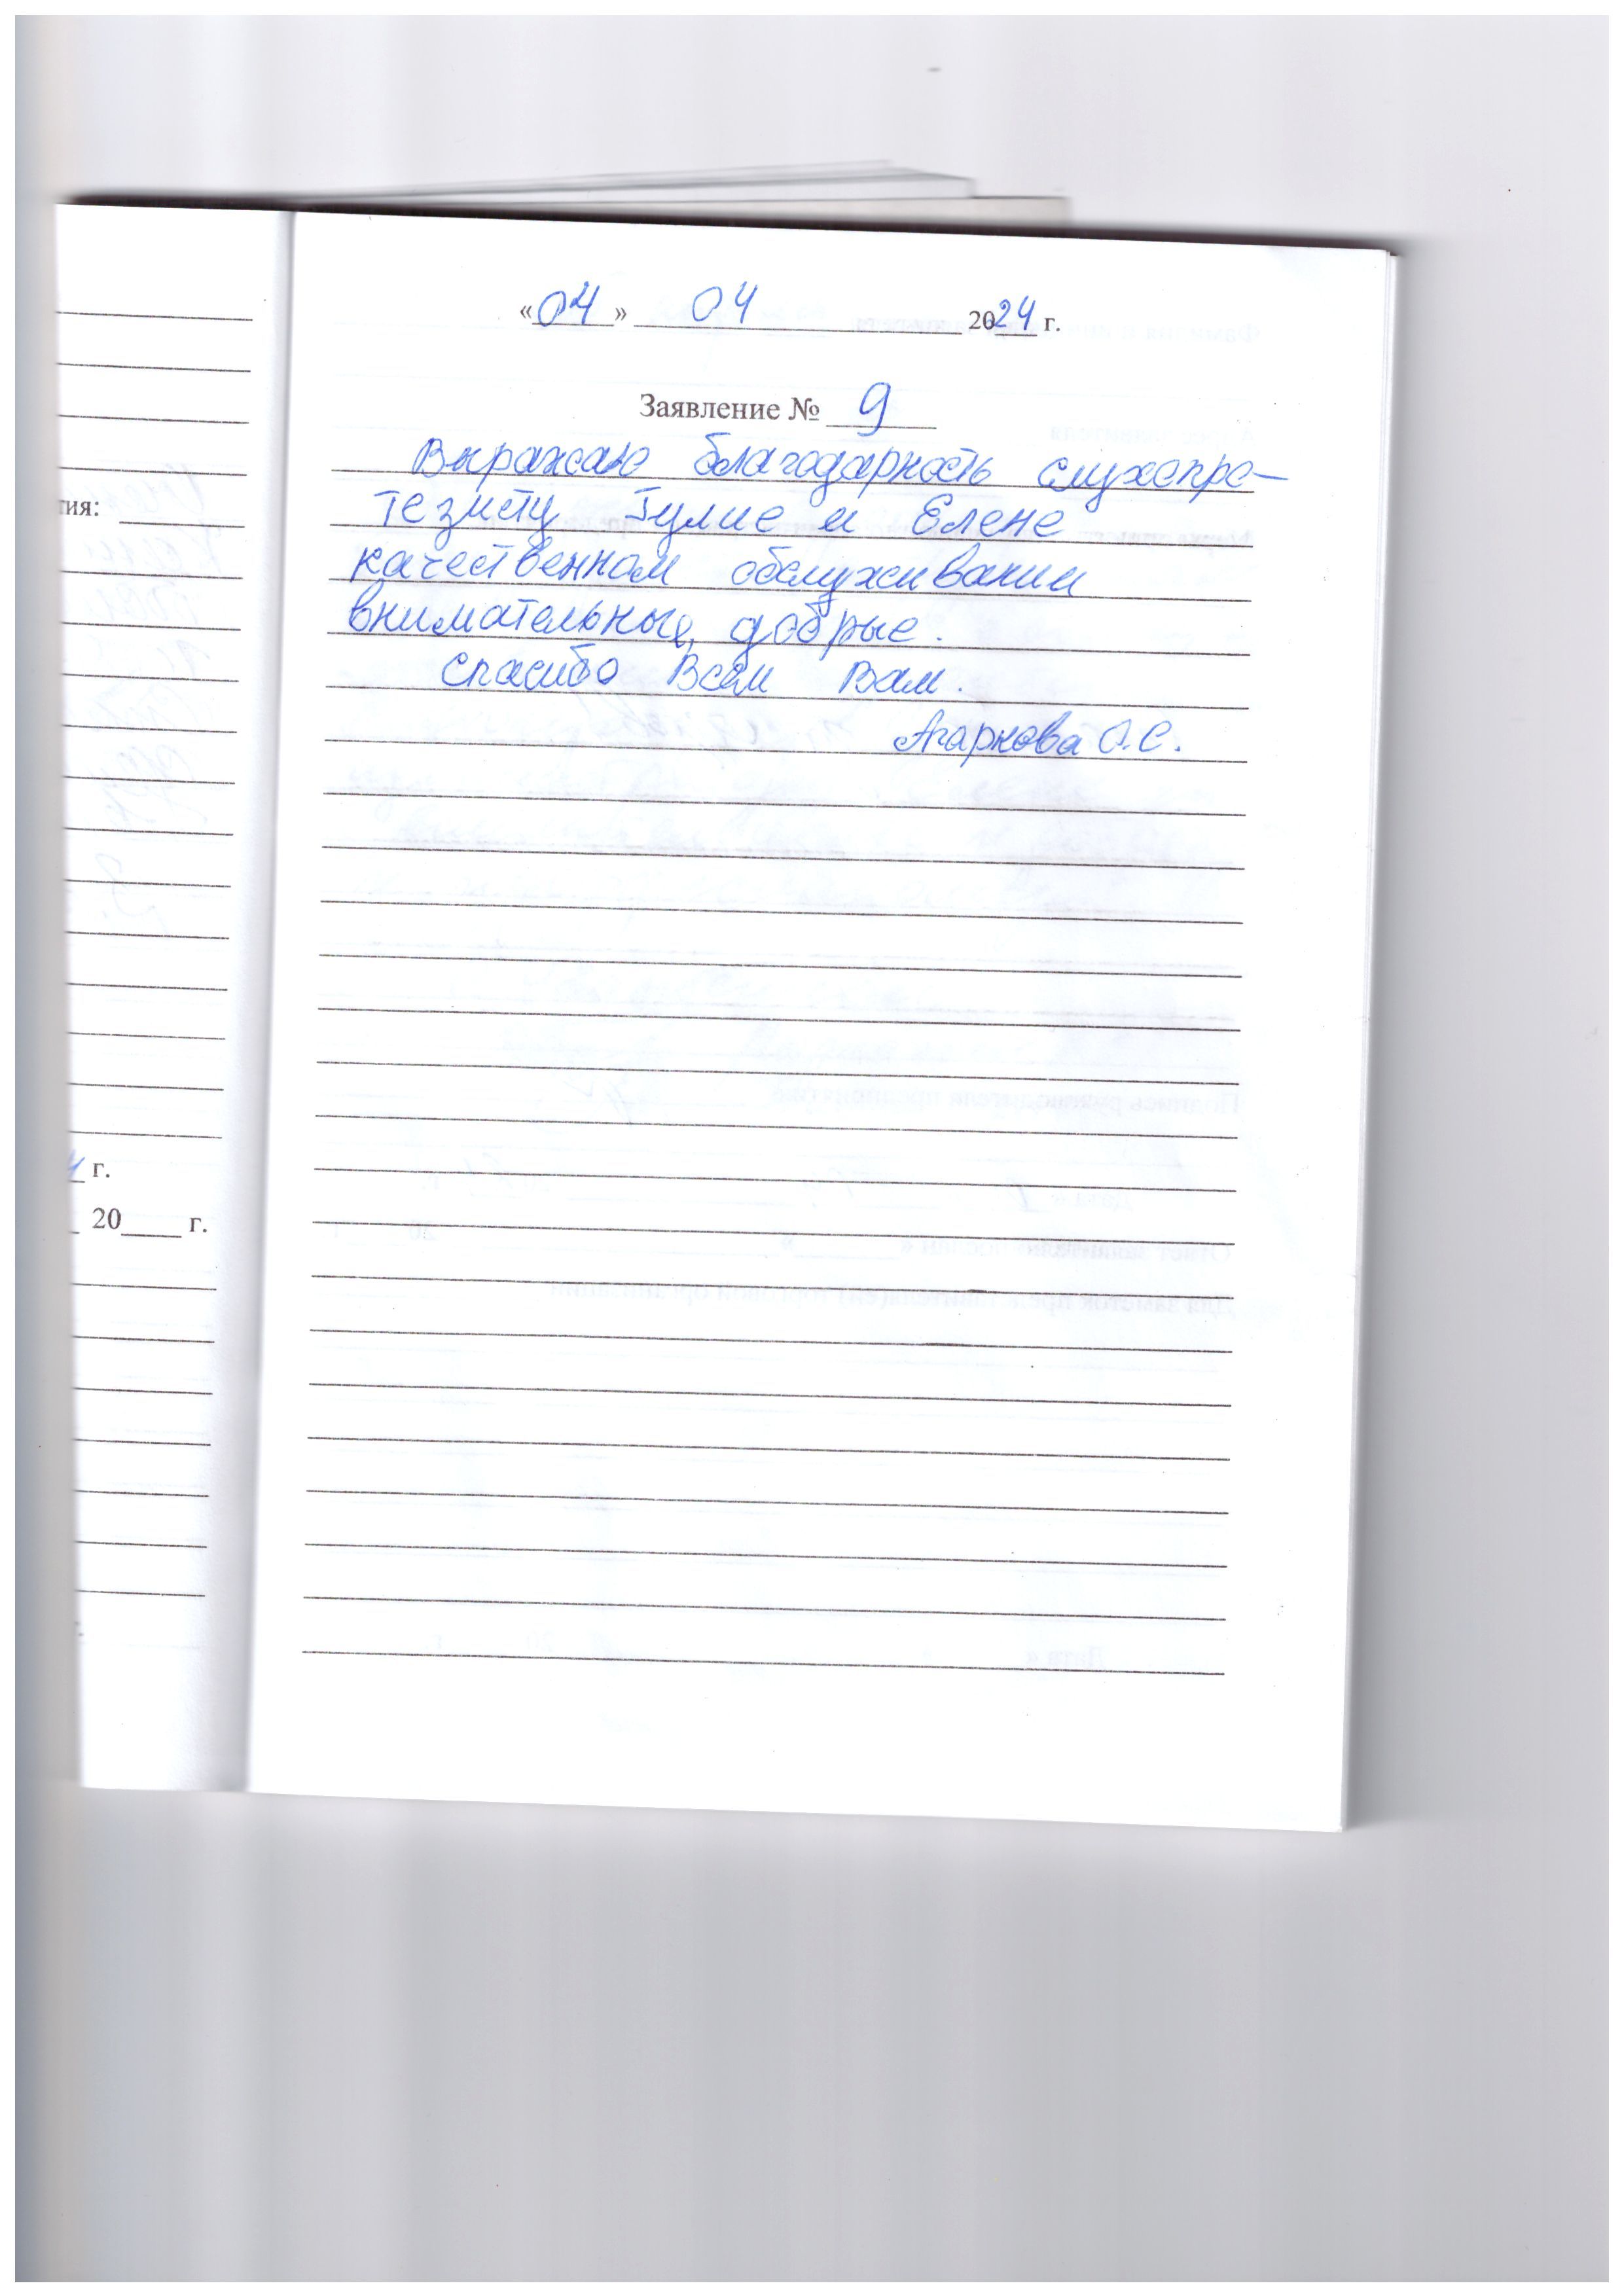 «04» 04 2024 г.
Заявление № 9
Выражаю благодарность слухопро-
тезисту Гулие и Елене
качественном обслуживании
внимательные, добрые.
спасибо Всем Вам.
Агаркова О.С.
тия:
г.
20 г.